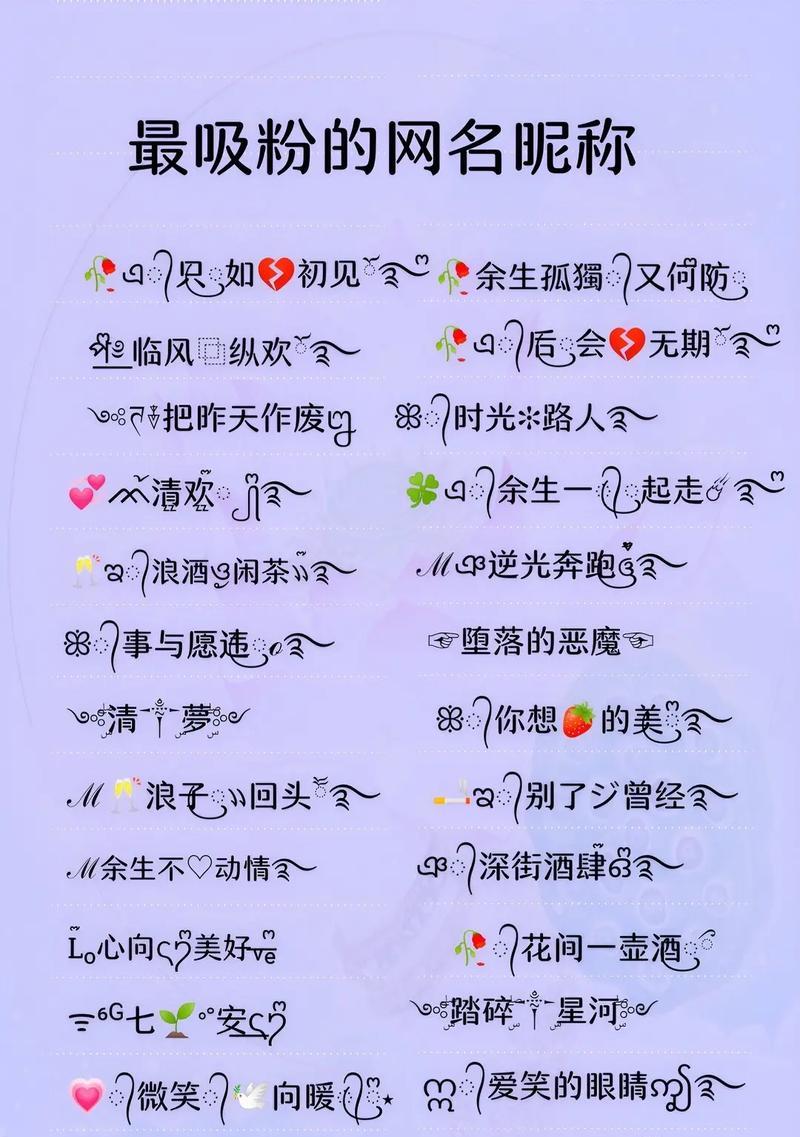 最吸粉的网名昵称
🥀এ᭄只ꦿ如💔初见ོ࿐ღ
🥀余生孤獨᭄又何防ꦿ
临风⿻纵欢ོ࿐
🥀এ᭄后ꦿ会💔无期ོ࿐ღ
༺把昨天作废
ꕥ᭄时光✻路人࿐
💕ᨐ清欢࿐
🍀এ᭄余生一᭄ꦿ起走☄࿐ღ
🥂ఇ᭄浪酒ꦿ闲茶࿐
ℳঞ逆光奔跑࿐
ꕥ᭄事与愿违ꦿℴ࿐
☞堕落的恶魔☜
༺清༒夢༻
ꕥ᭄你想🍓的美࿐
ℳ🥂浪子ꦿ回头࿐
🚬ఇ᭄别了ジ曾经࿐
ℳ余生不♡动情࿐
ঞ᭄深街酒肆࿐
L₀心向美好
🥀᭄花间一壶酒
⁶ᴳ七🌱°安
༺踏碎༒星河༻
💗᭄微笑᭄🕊️向暖᭄ꦿ⋆
ꦿ᭄爱笑的眼睛࿐